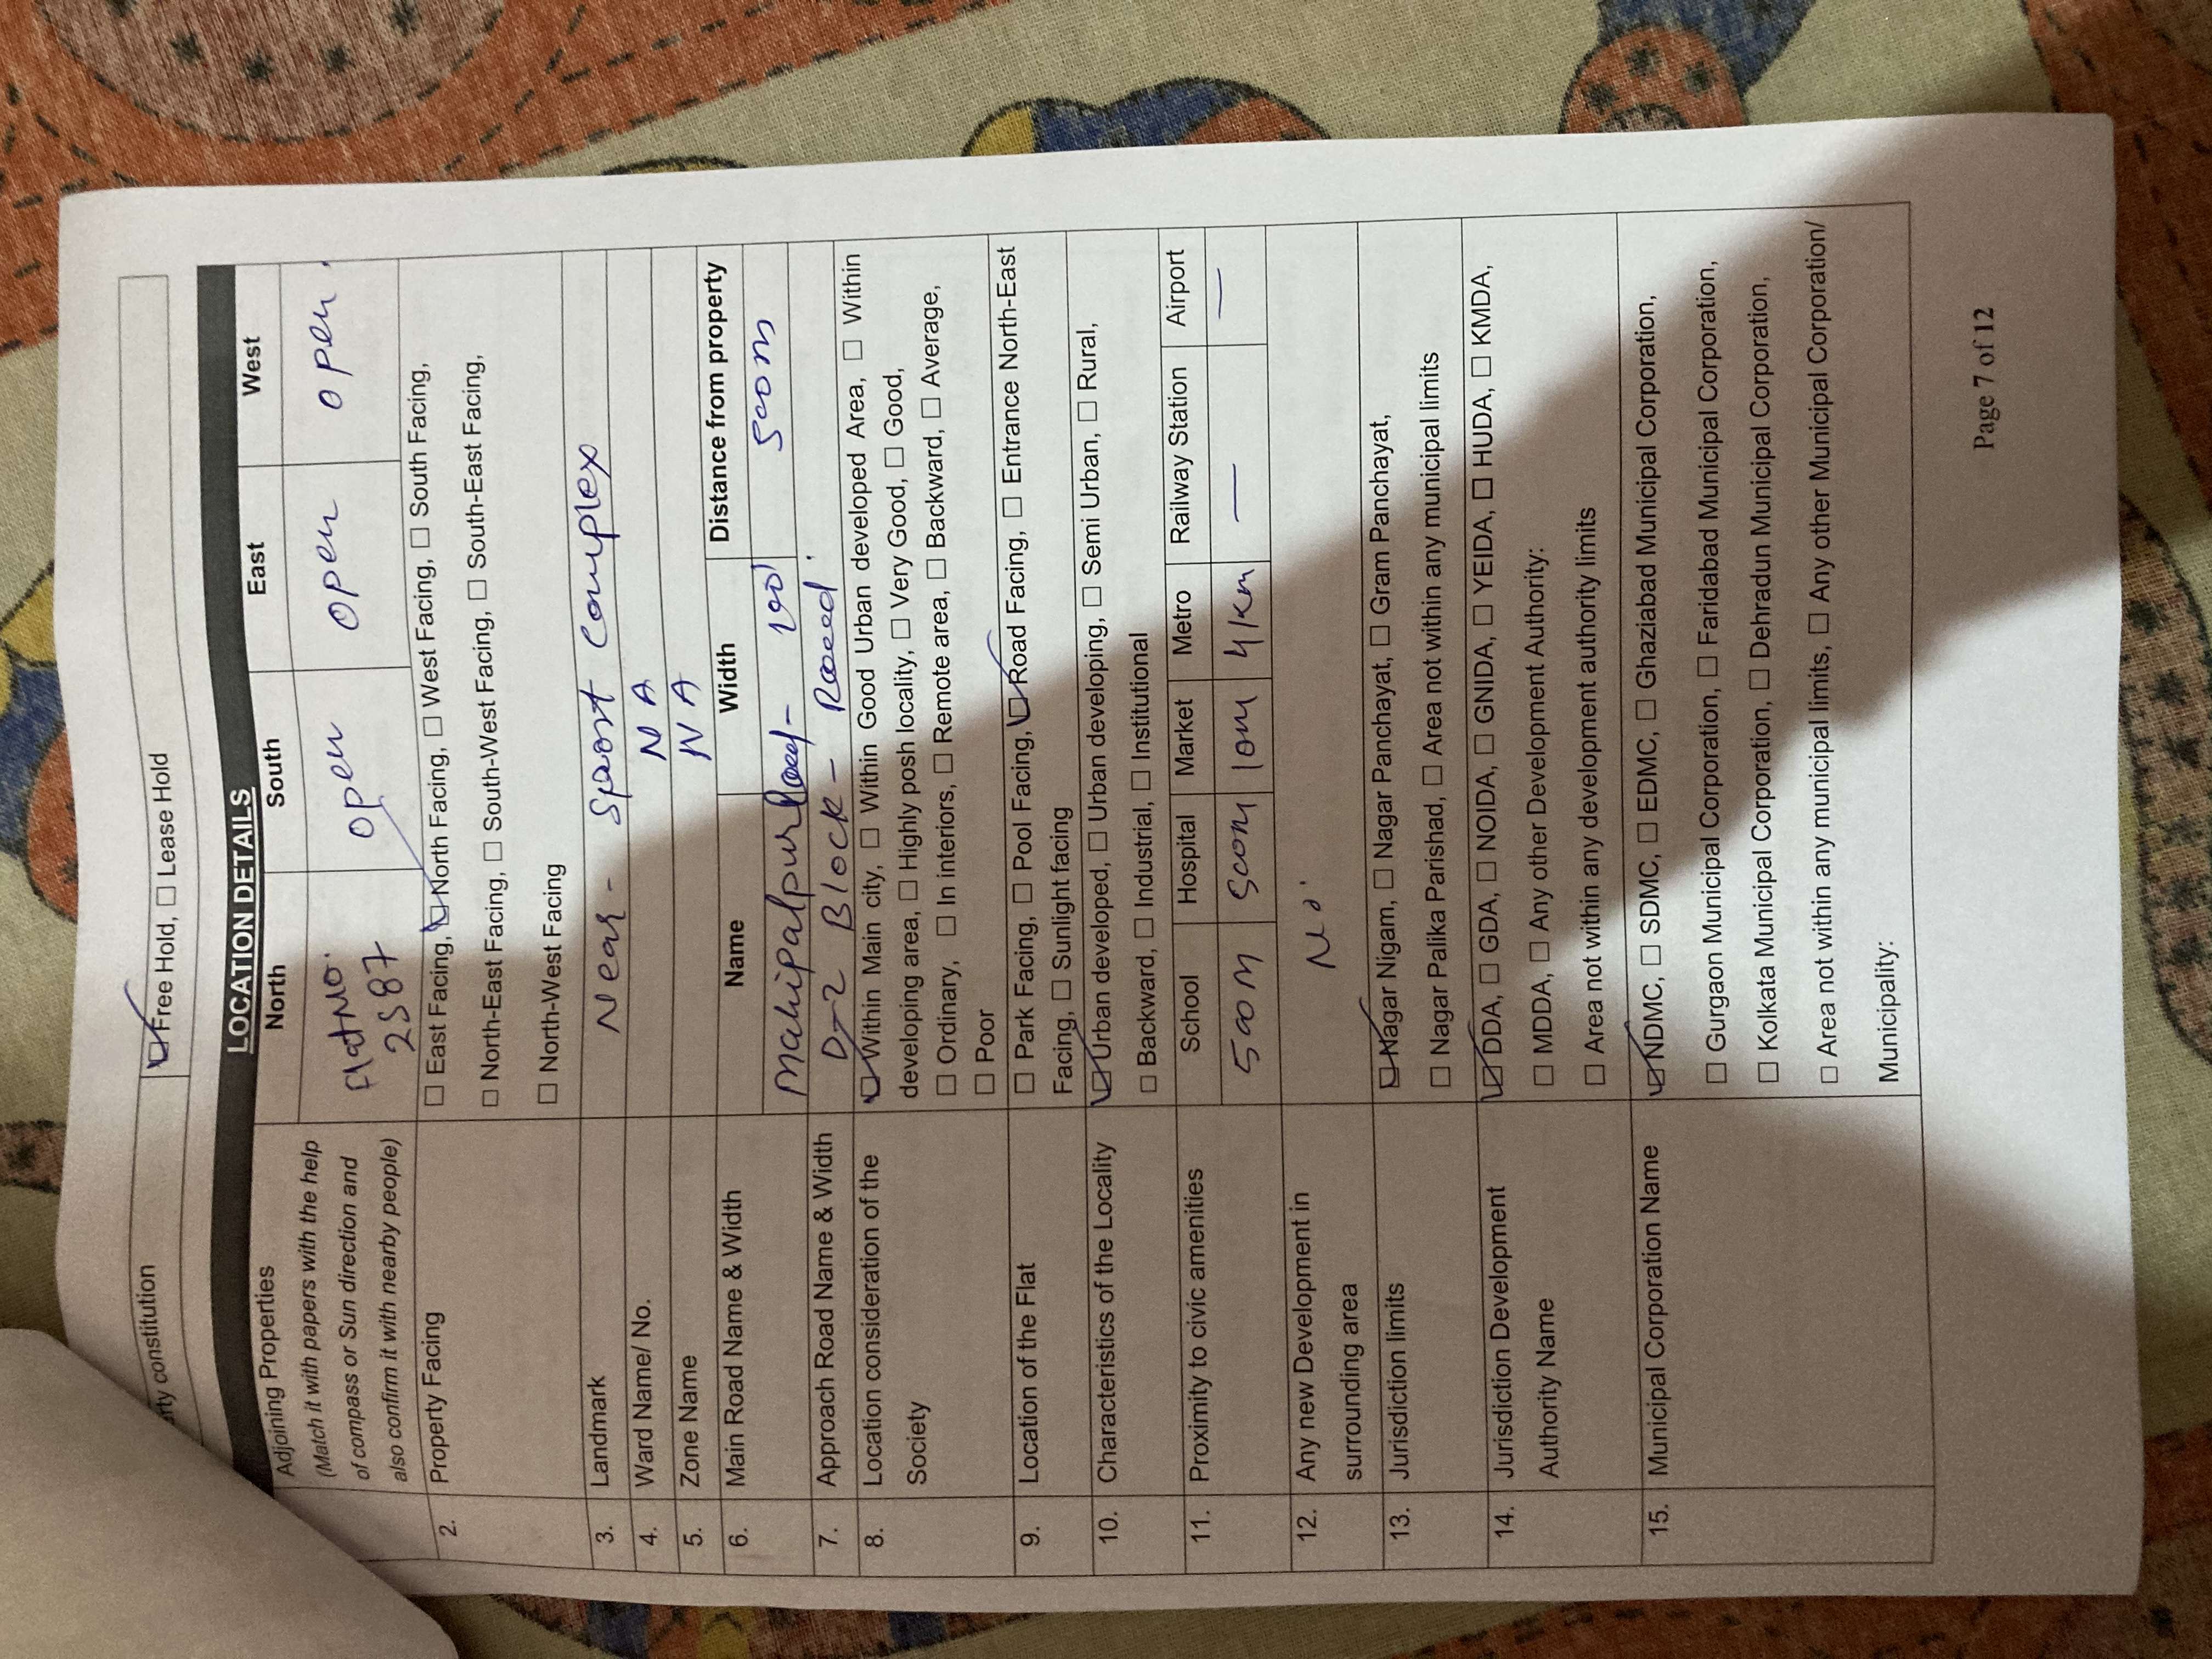 rty constitution ☑ Free Hold, ☐ Lease Hold
LOCATION DETAILS
Adjoining Properties North South East West
(Match it with papers with the help
of compass or Sun direction and
also confirm it with nearby people)
Flat No. 2587 open open open
2. Property Facing ☐ East Facing, ☑ North Facing, ☐ West Facing, ☐ South Facing,
☐ North-East Facing, ☐ South-West Facing, ☐ South-East Facing,
☐ North-West Facing
3. Landmark Near - Sport Complex
4. Ward Name/ No. N A
5. Zone Name N A
6. Main Road Name & Width Name Width Distance from property
Mahipalpur Road - 500m
7. Approach Road Name & Width D-2 Block -
8. Location consideration of the ☑ Within Main city, ☐ Within Good Urban developed Area, ☐ Within
Society developing area, ☐ Highly posh locality, ☐ Very Good, ☐ Good,
☐ Ordinary, ☐ In interiors, ☐ Remote area, ☐ Backward, ☐ Average,
☐ Poor
9. Location of the Flat ☐ Park Facing, ☐ Pool Facing, ☑ Road Facing, ☐ Entrance North-East
Facing, ☐ Sunlight facing
10. Characteristics of the Locality ☑ Urban developed, ☐ Urban developing, ☐ Semi Urban, ☐ Rural,
☐ Backward, ☐ Industrial, ☐ Institutional
11. Proximity to civic amenities School Hospital Market Metro Railway Station Airport
500m 500m 10m 4km — —
12. Any new Development in No.
surrounding area
13. Jurisdiction limits ☑ Nagar Nigam, ☐ Nagar Panchayat, ☐ Gram Panchayat,
☐ Nagar Palika Parishad, ☐ Area not within any municipal limits
14. Jurisdiction Development ☑ DDA, ☐ GDA, ☐ NOIDA, ☐ GNIDA, ☐ YEIDA, ☐ HUDA, ☐ KMDA,
Authority Name ☐ MDDA, ☐ Any other Development Authority:
☐ Area not within any development authority limits
15. Municipal Corporation Name ☑ NDMC, ☐ SDMC, ☐ EDMC, ☐ Ghaziabad Municipal Corporation,
☐ Gurgaon Municipal Corporation, ☐ Faridabad Municipal Corporation,
☐ Kolkata Municipal Corporation, ☐ Dehradun Municipal Corporation,
☐ Area not within any municipal limits, ☐ Any other Municipal Corporation/
Municipality:
Page 7 of 12